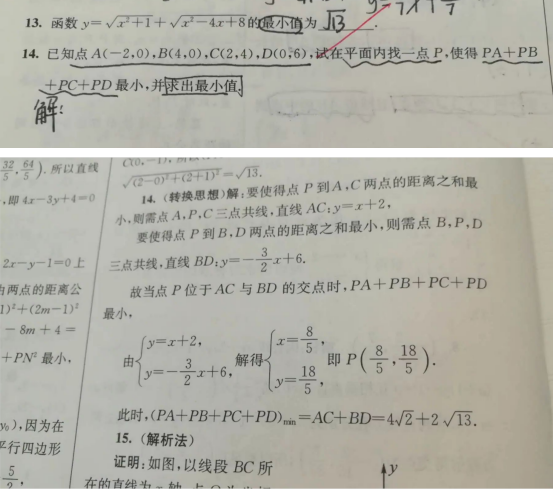 y= 7x+
13. 函数 y=√(x²+1)+√(x²-4x+8)的最小值为 √13 .
14. 已知点 A(-2,0),B(4,0),C(2,4),D(0,6),试在平面内找一点 P,使得 PA+PB
+PC+PD 最小,并求出最小值.
解:
√((2-0)²+(2+1)²)=√13.
14. (转换思想)解:要使得点 P 到 A,C 两点的距离之和最
小,则需点 A,P,C 三点共线,直线 AC:y=x+2,
要使得点 P 到 B,D 两点的距离之和最小,则需点 B,P,D
三点共线,直线 BD:y=-3/2x+6.
故当点 P 位于 AC 与 BD 的交点时,PA+PB+PC+PD
最小,
由{y=x+2, y=-3/2x+6, 解得{x=8/5, y=18/5, 即 P(8/5,18/5).
此时,(PA+PB+PC+PD)min=AC+BD=4√2+2√13.
15. (解析法)
证明:如图,以线段 BC 所
y
32/5,64/5). 所以直线
,即 4x-3y+4=0
2x-y-1=0上
由两点的距离公
1)²+(2m-1)²
-8m+4=
+PN²最小,
y₀),因为在
平行四边形
5/2,